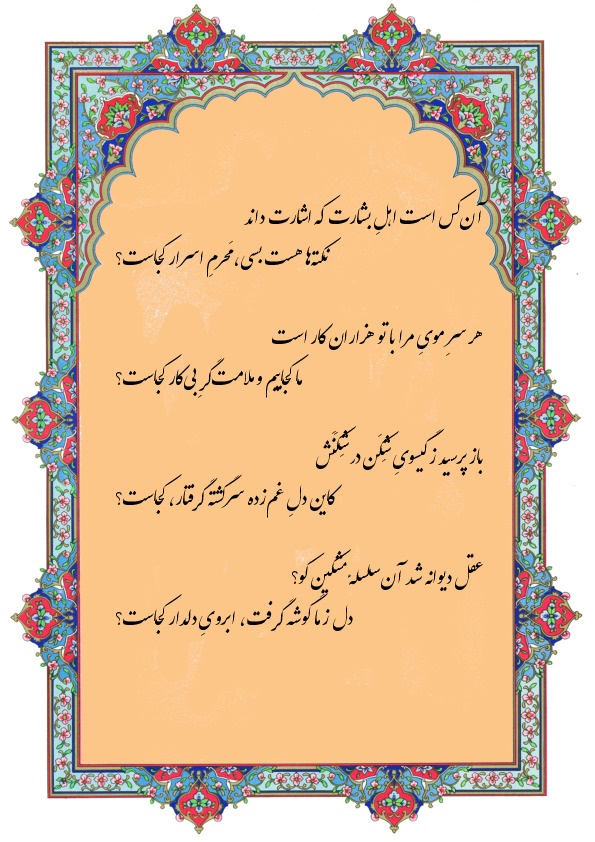 آن‌کس است اهلِ بشارت که اشارت داند
نکته‌ها هست بسی، مَحرمِ اسرار کجاست؟
هر سرِ مویِ مرا با تو هزاران کار است
ما کجاییم و ملامت‌گرِ بی‌کار کجاست؟
باز پرسید ز گیسویِ شِکَن در شِکَنَش
کاین دلِ غم‌زده سرگشته گرفتار، کجاست؟
عقل دیوانه شد آن سلسلهٔ مشکین کو؟
دل ز ما گوشه گرفت، ابرویِ دلدار کجاست؟